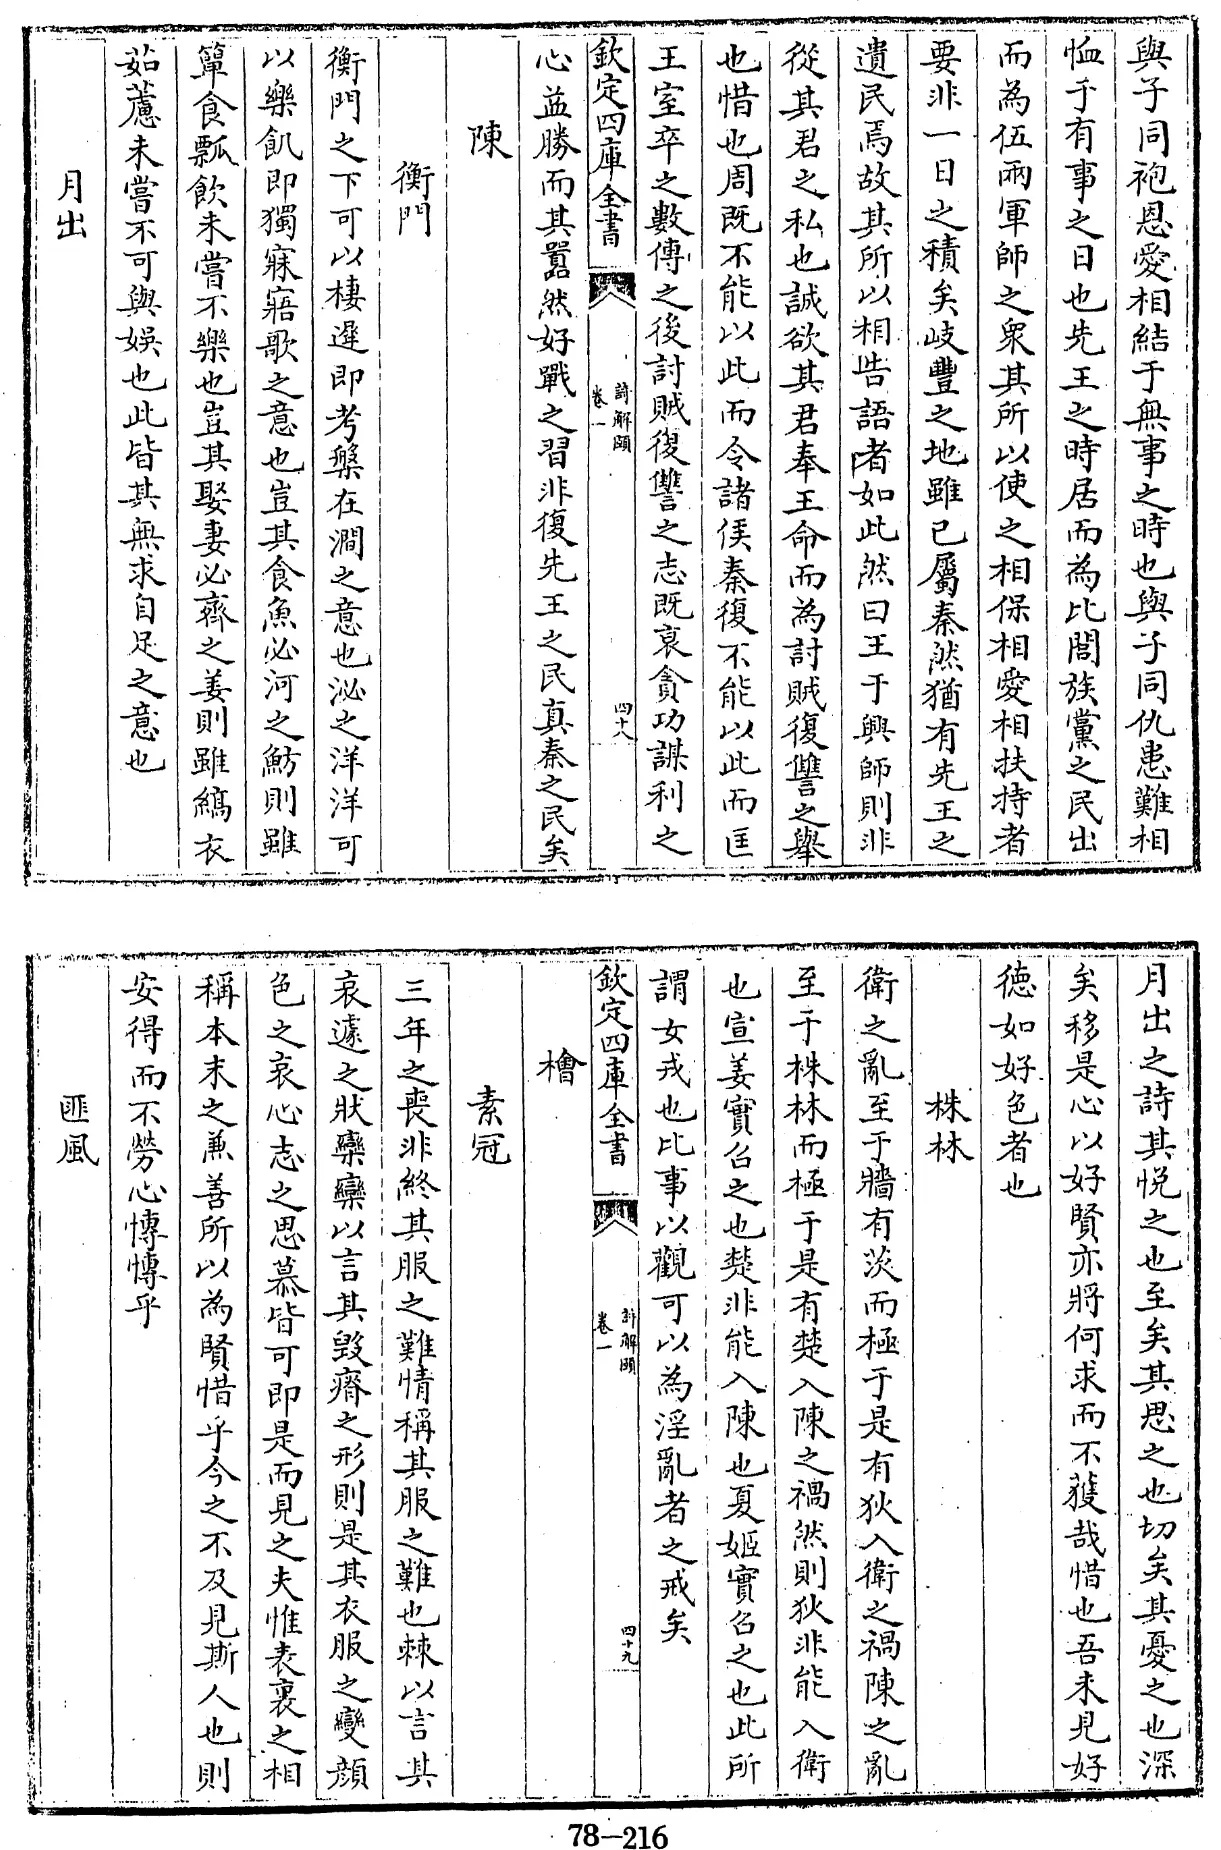 與子同袍恩愛相結于無事之時也與子同仇患難相
恤于有事之日也先王之時居而為比閭族黨之民出
而為伍兩軍師之衆其所以使之相保相愛相扶持者
要非一日之積矣岐豐之地雖已屬秦然猶有先王之
遺民焉故其所以相告語者如此然曰王于興師則非
從其君之私也誠欲其君奉王命而為討賊復讐之舉
也惜也周既不能以此而令諸侯秦復不能以此而匡
王室卒之數傳之後討賊復讐之志既衰貪功謀利之
欽定四庫全書
詩解頤
卷一
四十八
心益勝而其囂然好戰之習非復先王之民真秦之民矣
陳
衡門
衡門之下可以棲遲即考槃在澗之意也泌之洋洋可
以樂飢即獨寐寤歌之意也豈其食魚必河之魴則雖
簞食瓢飲未嘗不樂也豈其娶妻必齊之姜則雖縞衣
茹藘未嘗不可與娛也此皆其無求自足之意也
月出
月出之詩其悅之也至矣其思之也切矣其憂之也深
矣移是心以好賢亦將何求而不獲哉惜也吾未見好
德如好色者也
株林
衛之亂至于牆有茨而極于是有狄入衛之禍陳之亂
至于株林而極于是有楚入陳之禍然則狄非能入衛
也宣姜實召之也楚非能入陳也夏姬實召之也此所
謂女戎也比事以觀可以為淫亂者之戒矣
欽定四庫全書
詩解頤
卷一
四十九
檜
素冠
三年之喪非終其服之難情稱其服之難也棘以言其
哀遽之狀欒欒以言其毀瘠之形則是其衣服之變顏
色之哀心志之思慕皆可即是而見之夫惟表裏之相
稱本末之兼善所以為賢惜乎今之不及見斯人也則
安得而不勞心慱慱乎
匪風
78-216